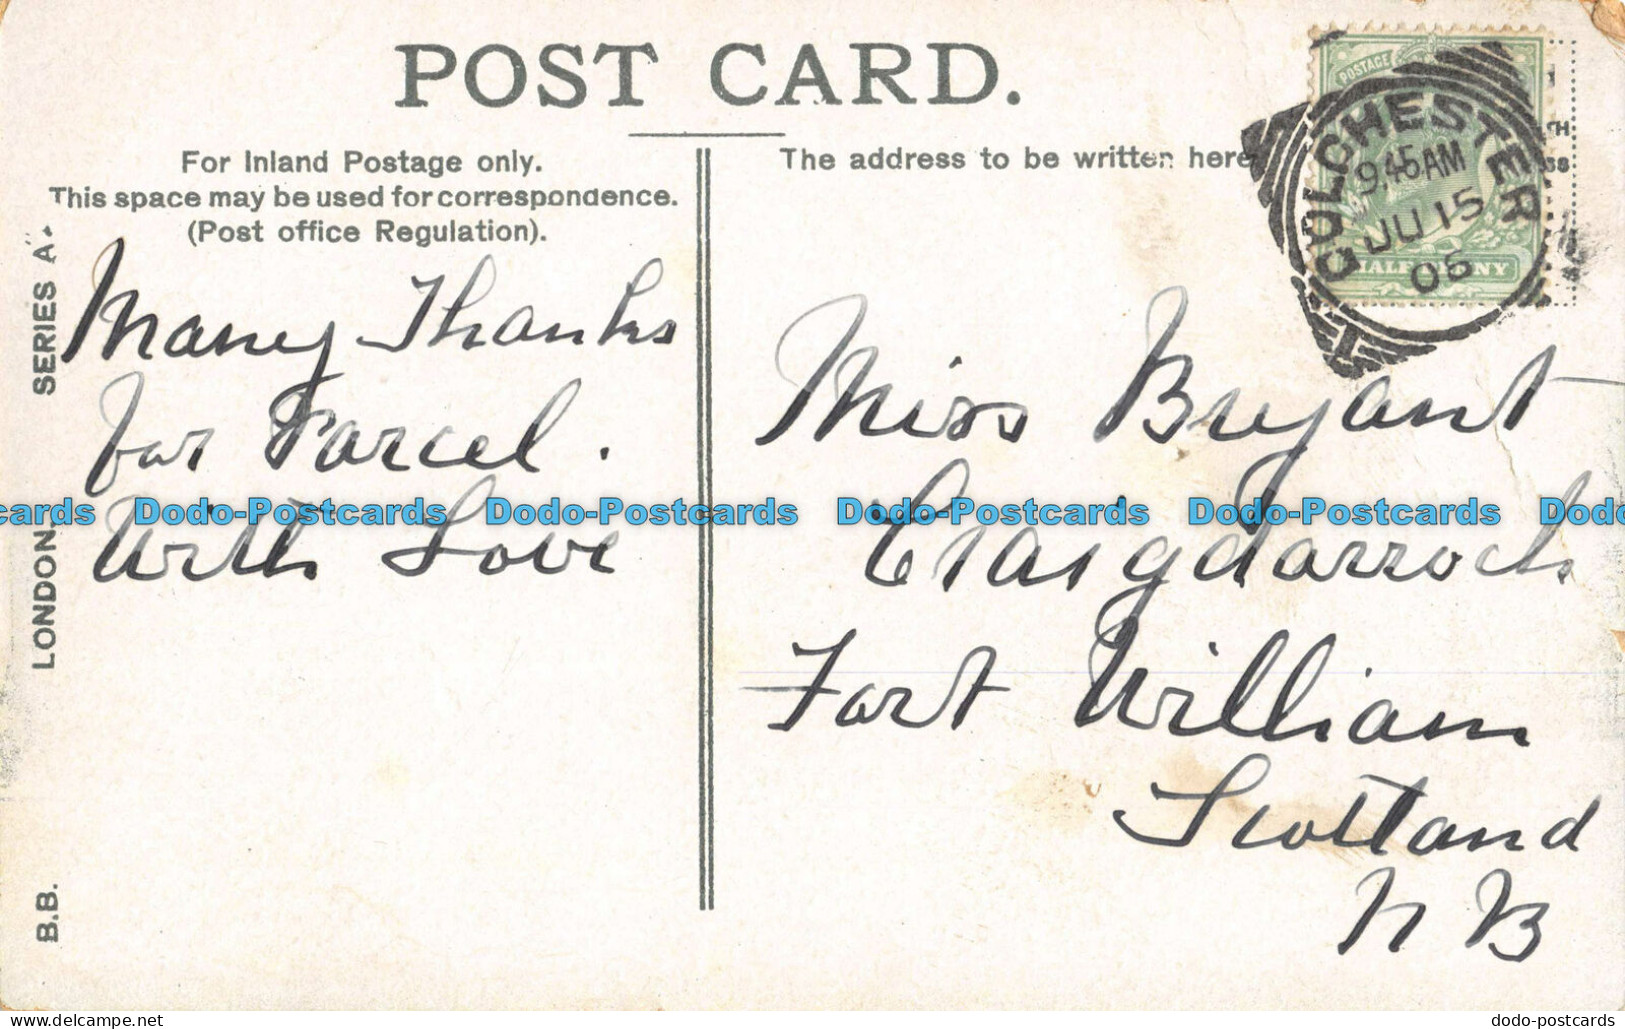 POST CARD.
For Inland Postage only.
This space may be used for correspondence.
(Post office Regulation).
The address to be written here
B.B. LONDON. SERIES A
Many Thanks
for Parcel.
With Love
Miss Bryant
Craigdarroch
Fort William
Scotland
N B
POSTAGE
HALFPENNY
COLCHESTER
9.45 AM
JU 15
06
1
Dodo-Postcards Dodo-Postcards Dodo-Postcards Dodo-Postcards
dodo-postcards.delcampe.net
dodo-postcards